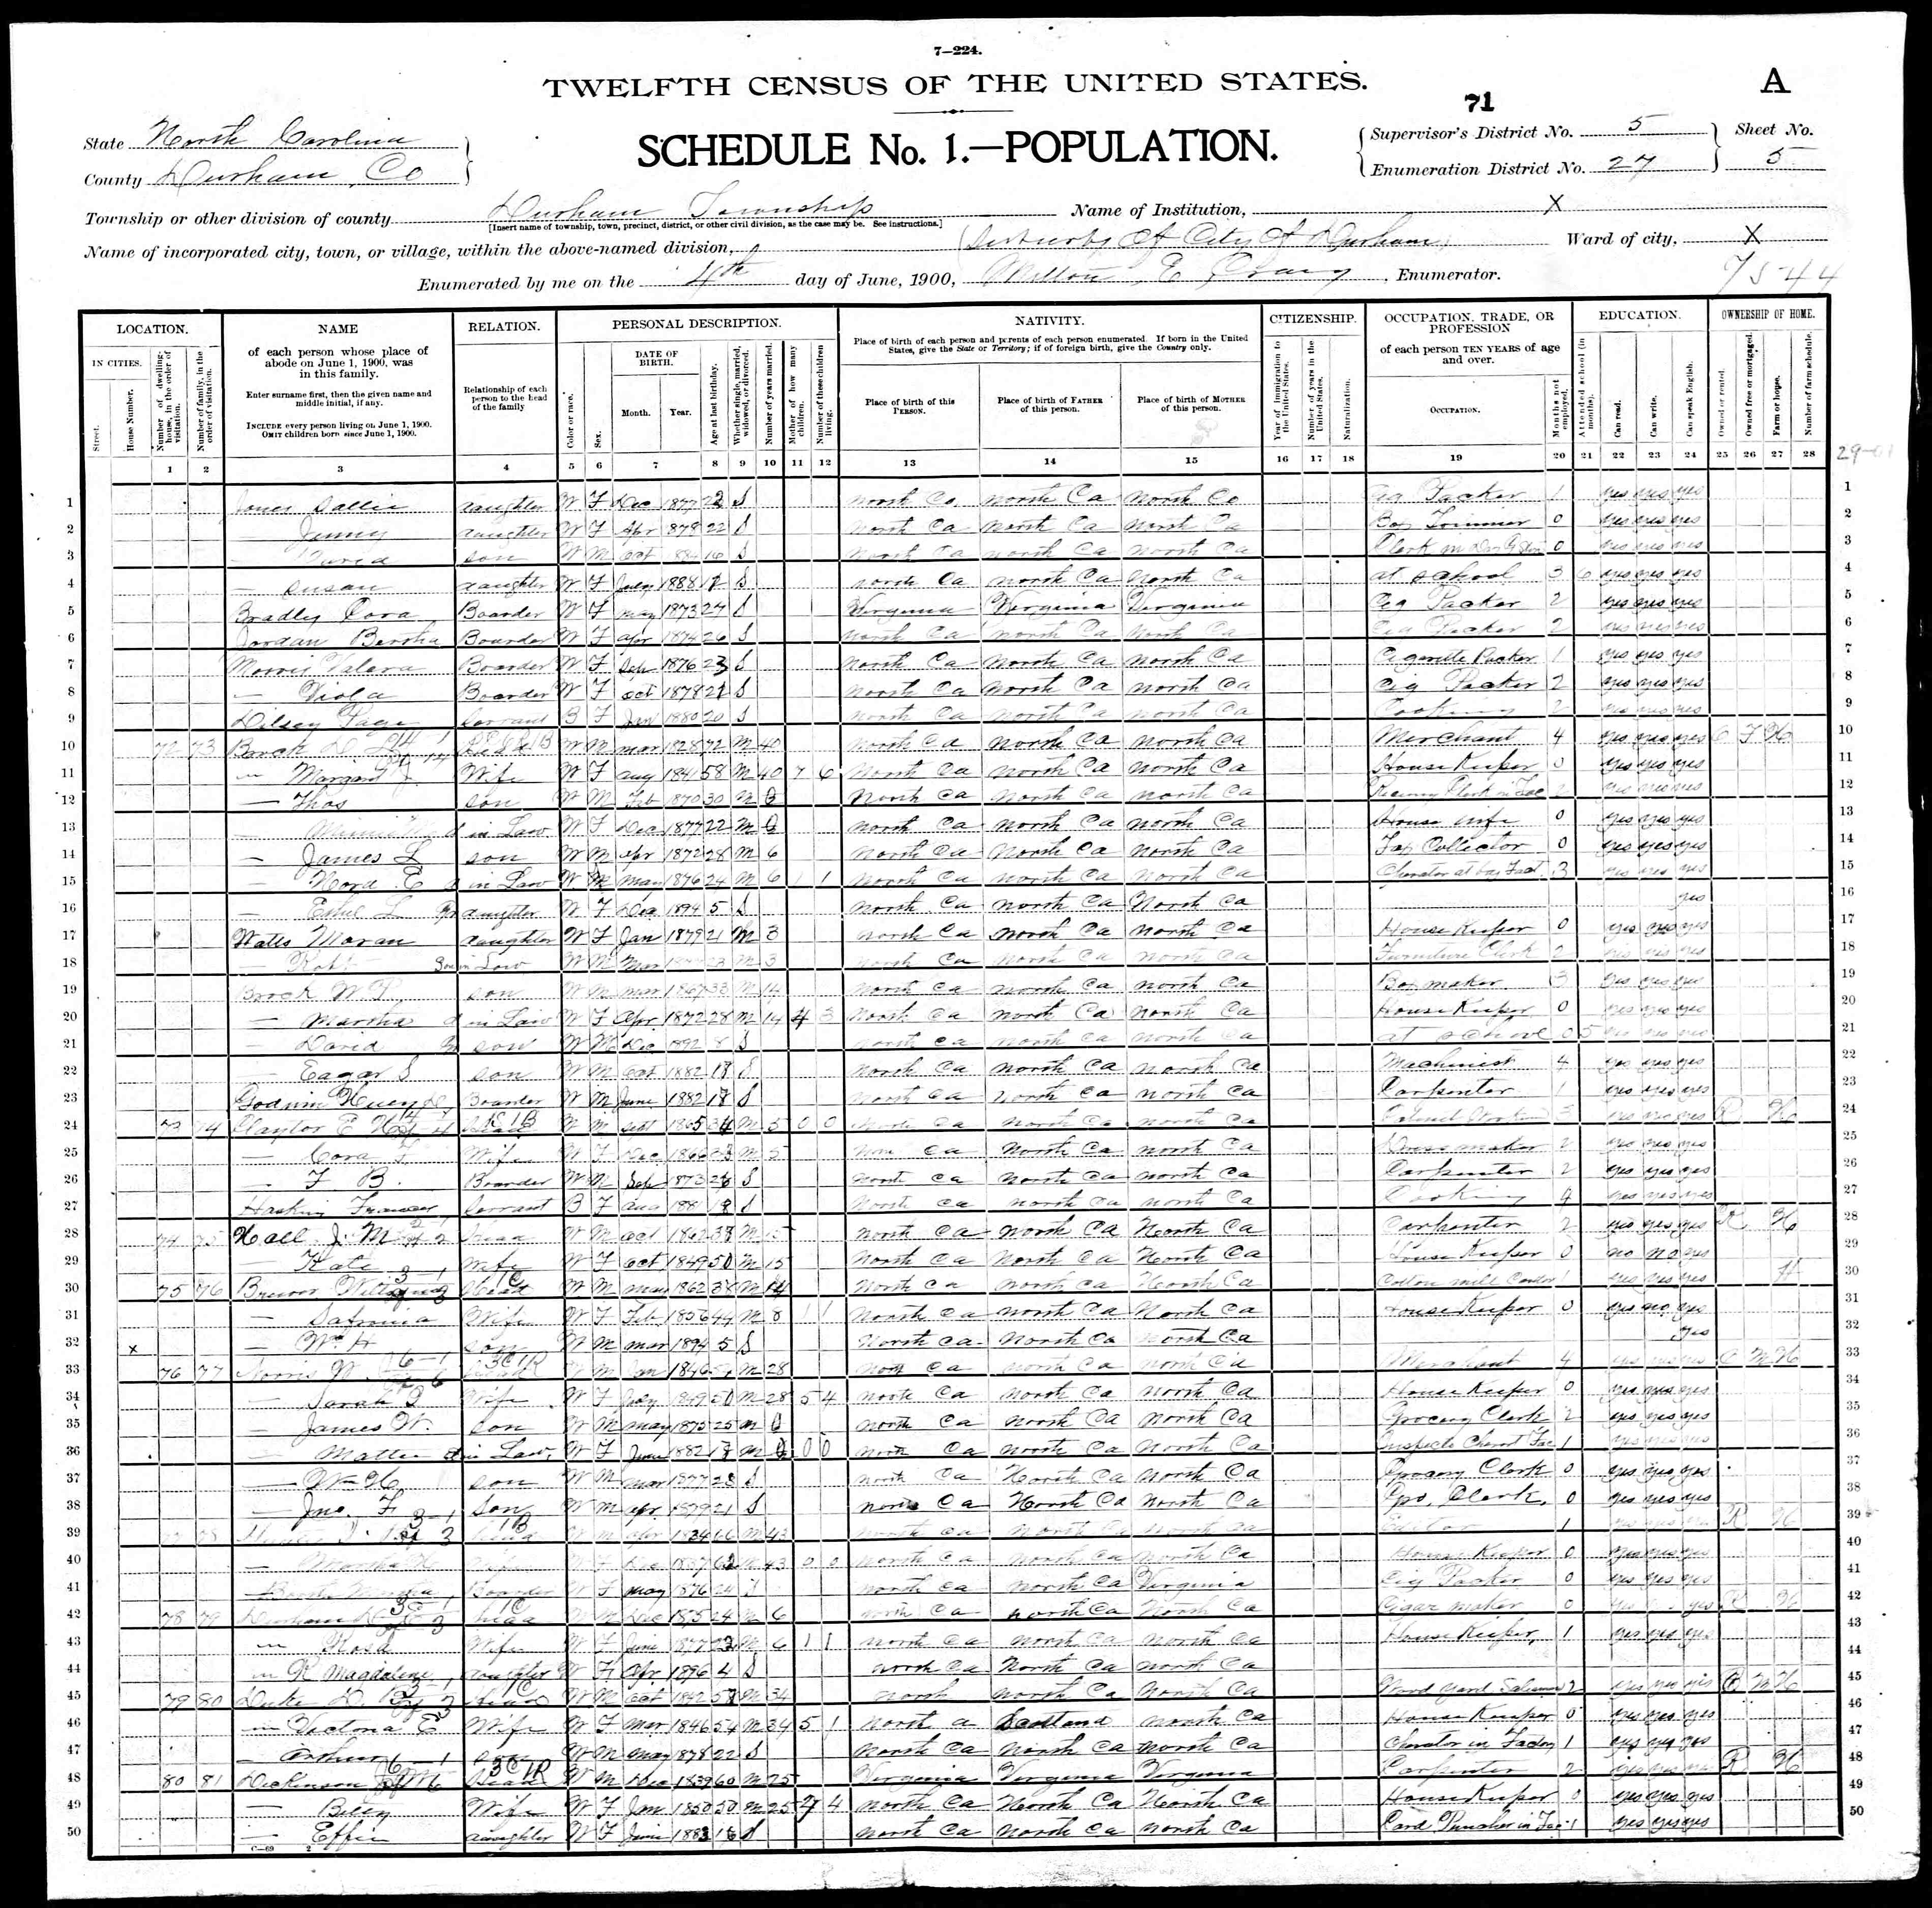 7—224.
TWELFTH CENSUS OF THE UNITED STATES.
A
71
SCHEDULE No. 1.—POPULATION.
State North Carolina
County Durham, Co
Supervisor's District No. 5
Enumeration District No. 27
Sheet No.
5
Township or other division of county Durham Township
[Insert name of township, town, precinct, district, or other civil division, as the case may be. See instructions.]
Name of Institution, X
Name of incorporated city, town, or village, within the above-named division, (Suburbs of City of Durham)
Ward of city, X
Enumerated by me on the 4th day of June, 1900, Milton E , Enumerator.
7544
LOCATION.
IN CITIES.
Street.
House Number.
Number of dwelling-house, in the order of visitation.
Number of family, in the order of visitation.
NAME
of each person whose place of abode on June 1, 1900, was in this family.
Enter surname first, then the given name and middle initial, if any.
INCLUDE every person living on June 1, 1900.
OMIT children born since June 1, 1900.
RELATION.
Relationship of each person to the head of the family
PERSONAL DESCRIPTION.
Color or race.
Sex.
DATE OF BIRTH.
Month. Year.
Age at last birthday.
Whether single, married, widowed, or divorced.
Number of years married.
Mother of how many children.
Number of these children living.
NATIVITY.
Place of birth of each person and parents of each person enumerated. If born in the United States, give the State or Territory; if of foreign birth, give the Country only.
Place of birth of this PERSON.
Place of birth of FATHER of this person.
Place of birth of MOTHER of this person.
CITIZENSHIP.
Year of immigration to the United States.
Number of years in the United States.
Naturalization.
OCCUPATION, TRADE, OR PROFESSION
of each person TEN YEARS of age and over.
OCCUPATION.
Months not employed.
EDUCATION.
Attended school (in months).
Can read.
Can write.
Can speak English.
OWNERSHIP OF HOME.
Owned or rented.
Owned free or mortgaged.
Farm or house.
Number of farm schedule.
1 2 3 4 5 6 7 8 9 10 11 12 13 14 15 16 17 18 19 20 21 22 23 24 25 26 27 28
1 Jones Sallie daughter W F Dec 1877 22 S North Ca North Ca North Ca Cig Packer 1 yes yes yes 1
2 — Jenny daughter W F Apr 1878 22 S North Ca North Ca North Ca Box Trimmer 0 yes yes yes 2
3 — David son W M Oct 16 S North Ca North Ca North Ca Clerk in 0 yes yes yes 3
4 — Susan daughter W F July 1888 12 S North Ca North Ca North Ca at school 3 6 yes yes yes 4
5 Bradley Cora Boarder W F May 1873 27 S Virginia Virginia Virginia Cig Packer 2 yes yes yes 5
6 Jordan Bertha Boarder W F Apr 1874 26 S North Ca North Ca North Ca Cig Packer 2 yes yes yes 6
7 Morris Valera Boarder W F Sep 1876 23 S North Ca North Ca North Ca Cigarette Packer 1 yes yes yes 7
8 — Viola Boarder W F Oct 1878 21 S North Ca North Ca North Ca Cig Packer 2 yes yes yes 8
9 Dilsey Page Servant B F Jan 1880 20 S North Ca North Ca North Ca Cooking 2 yes yes yes 9
10 72 73 Brock Head W M Mar 1828 72 M 40 North Ca North Ca North Ca Merchant 4 yes yes yes O F H 10
11 — Margaret J Wife W F Aug 1841 58 M 40 7 6 North Ca North Ca North Ca House Keeper 0 yes yes yes 11
12 — Thos son W M Feb 1870 30 M 0 North Ca North Ca North Ca Clerk in 2 yes yes yes 12
13 — Minnie M d in Law W F Dec 1877 22 M 0 North Ca North Ca North Ca House Wife 0 yes yes yes 13
14 — James L son W M Apr 1872 28 M 6 North Ca North Ca North Ca Tax Collector 0 yes yes yes 14
15 — Nora E d in Law W M May 1876 24 M 6 1 1 North Ca North Ca North Ca Operator at bag Fact 3 yes yes yes 15
16 — Ethel L Gr daughter W F Dec 1894 5 S North Ca North Ca North Ca yes 16
17 Watts Movan daughter W F Jan 1879 21 M 3 North Ca North Ca North Ca House Keeper 0 yes yes yes 17
18 — Robt Son in Law W M Mar 23 M 3 North Ca North Ca North Ca Furniture Clerk 2 yes yes yes 18
19 Brock W P son W M Mar 1867 33 M 14 North Ca North Ca North Ca Box maker 3 yes yes yes 19
20 — Martha d in Law W F Apr 1872 28 M 14 4 3 North Ca North Ca North Ca House Keeper 0 yes yes yes 20
21 — David Gr son W M Dec 1892 8 S North Ca North Ca North Ca at school 0 5 yes yes yes 21
22 — Eagar S son W M Oct 1882 18 S North Ca North Ca North Ca Machinist 4 yes yes yes 22
23 Godwin Huey D Boarder W M June 1882 18 S North Ca North Ca North Ca Carpenter 1 yes yes yes 23
24 73 74 Claytor E H Head W M Sept 1865 34 M 5 0 0 North Ca North Ca North Ca 3 yes yes yes R H 24
25 — Cora F Wife W F Dec 1866 33 M 5 North Ca North Ca North Ca Dress maker 2 yes yes yes 25
26 — F B. Boarder W M Sep 1873 26 S North Ca North Ca North Ca Carpenter 2 yes yes yes 26
27 Haskins Frances Servant B F Aug 1881 18 S North Ca North Ca North Ca Cooking 4 yes yes yes 27
28 74 75 Hall J. M Head W M Oct 1862 38 M 15 North Ca North Ca North Ca Carpenter 2 yes yes yes R H 28
29 — Kate Wife W F Oct 1849 50 M 15 North Ca North Ca North Ca House Keeper 0 no no yes 29
30 75 76 Brewer Head W M May 1862 38 M 14 North Ca North Ca North Ca Cotton mill Carder 1 yes yes yes H 30
31 — Satronia Wife W F Feb 1856 44 M 8 1 1 North Ca North Ca North Ca House Keeper 0 yes no yes 31
32 x — Wm H son W M Mar 1894 5 S North Ca North Ca North Ca yes 32
33 76 77 Norris W Head W M Jan 1846 M 28 North Ca North Ca North Ca Merchant 4 yes yes yes O M H 33
34 — Sarah J Wife W F July 1849 50 M 28 5 4 North Ca North Ca North Ca House Keeper 0 yes yes yes 34
35 — James W. son W M May 1875 25 M 0 North Ca North Ca North Ca Grocery Clerk 2 yes yes yes 35
36 — Mattie d in Law W F June 1882 17 M 0 0 0 North Ca North Ca North Ca Inspector Cheroot Fac 1 yes yes yes 36
37 — Wm H son W M Mar 1877 23 S North Ca North Ca North Ca Grocery Clerk 0 yes yes yes 37
38 — Jno. F Son W M Apr 1879 21 S North Ca North Ca North Ca Gro. Clerk. 0 yes yes yes 38
39 77 78 Head W M Apr 1834 66 M 43 North Ca North Ca North Ca 1 yes yes yes R H 39
40 — Martha Wife W F Dec 1837 62 M 43 0 0 North Ca North Ca North Ca House Keeper 0 yes yes yes 40
41 Boarder W F May 1876 24 S North Ca North Ca Virginia Cig Packer 0 yes yes yes 41
42 78 79 Durham Head W M Dec 1875 24 M 6 North Ca North Ca North Ca Cigar maker 0 yes yes R H 42
43 — Rosa Wife W F June 1877 22 M 6 1 1 North Ca North Ca North Ca House Keeper, 1 yes yes yes 43
44 — R Magdalene daughter W F Apr 1896 4 S North Ca North Ca North Ca 44
45 79 80 Duke Head W M Oct 1842 57 M 34 North North Ca North Ca Wood yard Salesman 2 yes yes yes O M H 45
46 — Victoria E Wife W F Mar 1846 54 M 34 5 1 North a Scotland North Ca House Keeper 0 yes yes yes 46
47 — Arthur son W M May 1878 22 S North Ca North Ca North Ca Operator in Factory 1 yes yes yes 47
48 80 81 Dickinson Head W M Dec 1839 60 M 25 Virginia Virginia Virginia Carpenter 2 yes yes R H 48
49 — Betty Wife W F Jan 1850 50 M 25 7 4 North Ca North Ca North Ca House Keeper 0 yes yes yes 49
50 — Effie daughter W F June 1883 16 S North Ca North Ca North Ca Card Puncher in Fac 1 yes yes yes 50